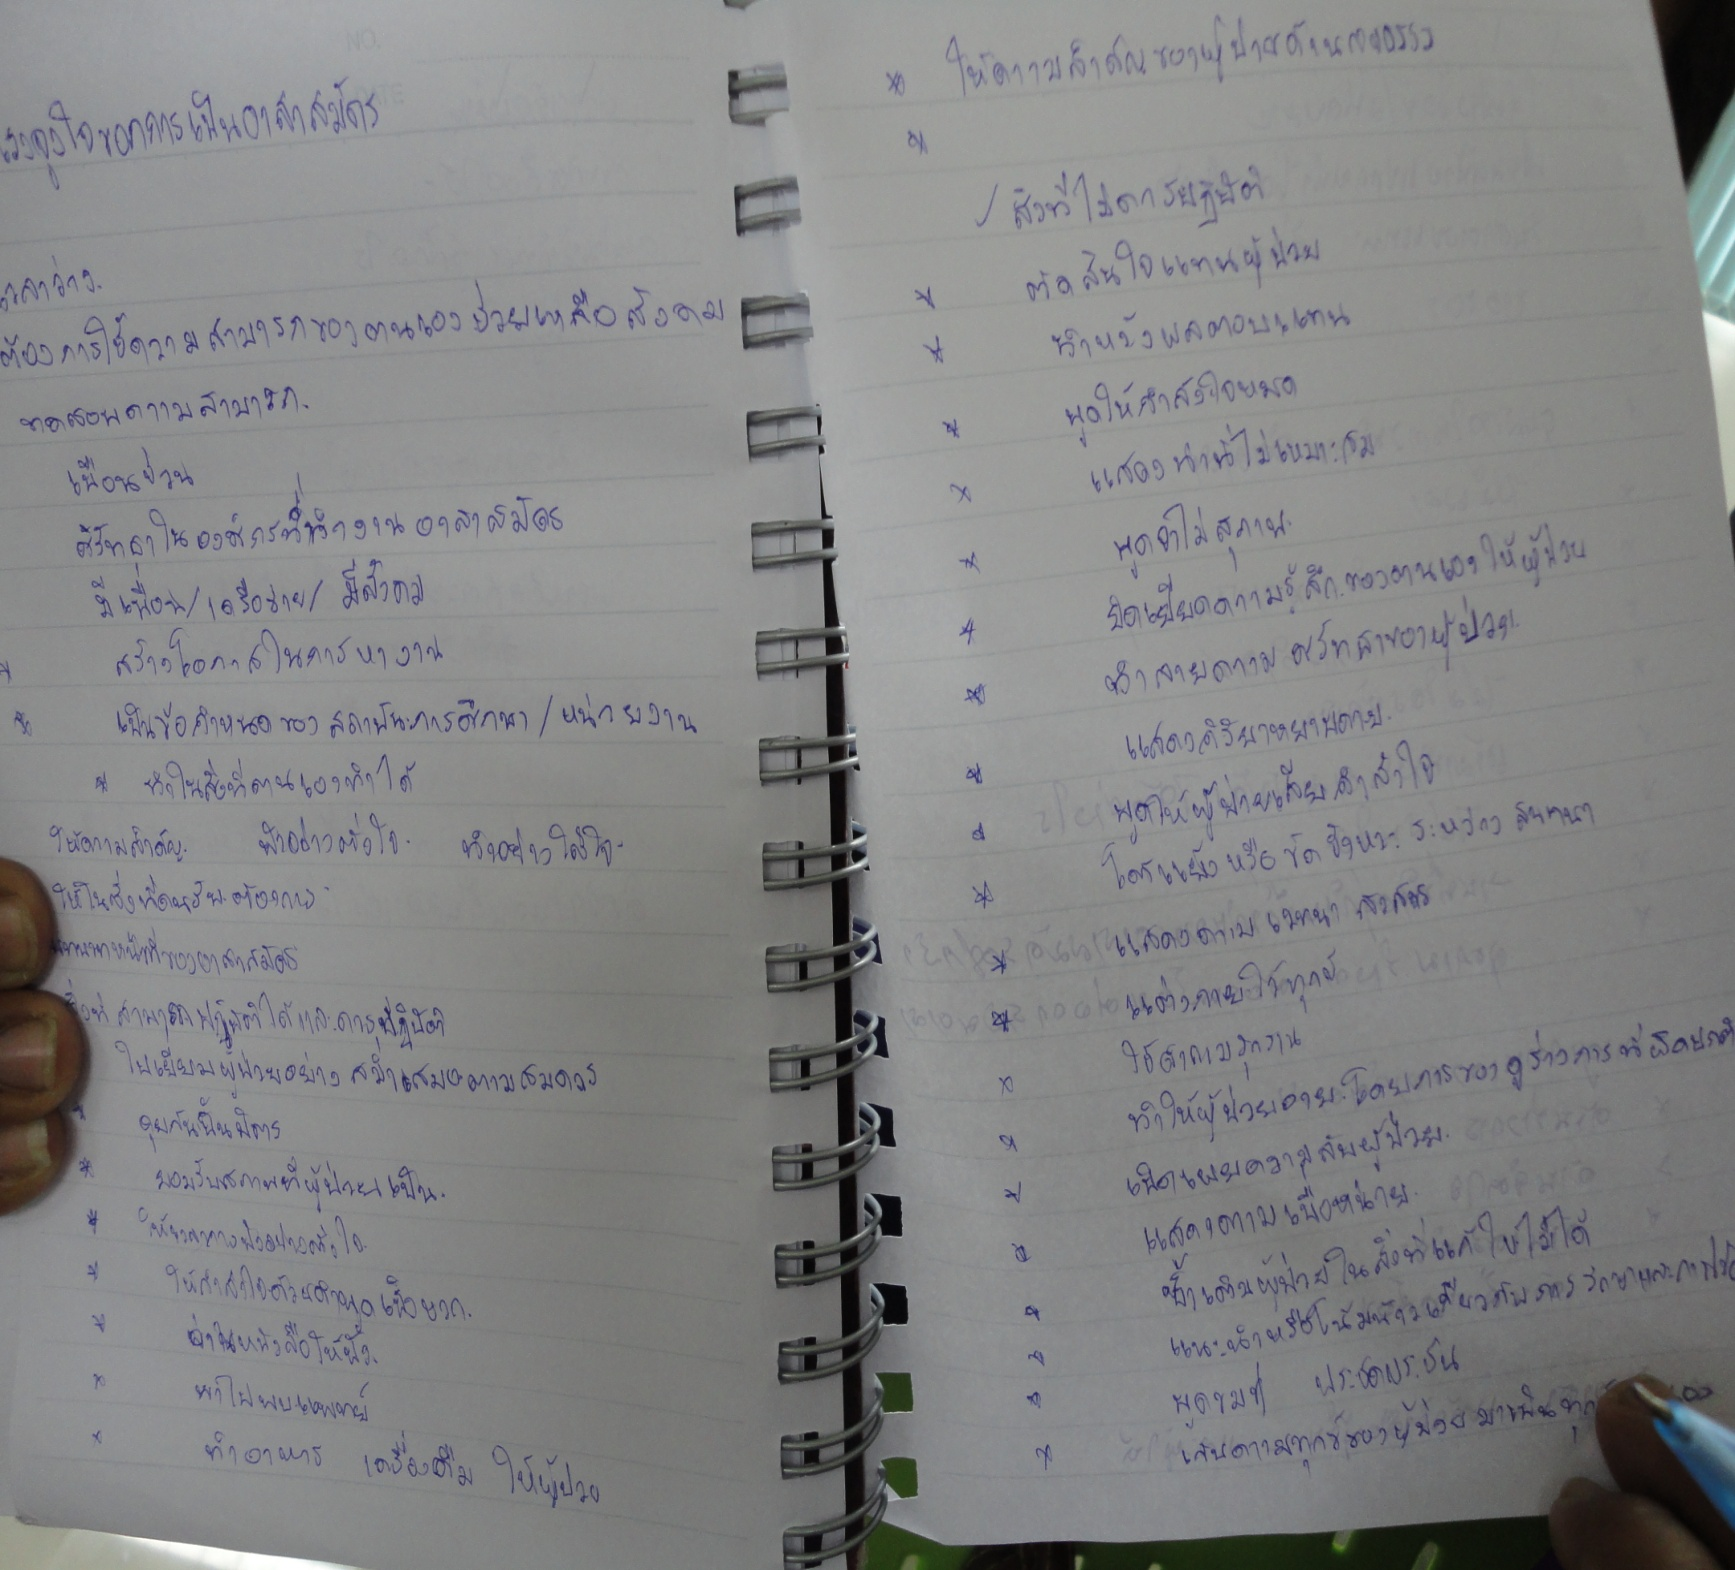 แรงจูงใจของการเป็นอาสาสมัคร
เวลาว่าง.
ต้องการใช้ความสามารถของตนเองช่วยเหลือสังคม
ทดสอบความสามารถ.
เพื่อนชวน
ศรัทธาในองค์กรที่ทำงานอาสาสมัคร
มีเพื่อน/เครือข่าย/ มีสังคม
* สร้างโอกาสในการหางาน
* เป็นข้อกำหนดของสถาบันการศึกษา/หน่วยงาน
* ทำในสิ่งที่ตนเองทำได้
ให้ความสำคัญ. ฟังอย่างตั้งใจ. ทำอย่างใส่ใจ.
ให้ในสิ่งที่คนรับต้องการ
บทบาทหน้าที่ของอาสาสมัคร
สิ่งที่สามารถปฏิบัติได้และควรปฏิบัติ
ไปเยี่ยมผู้ป่วยอย่างสม่ำเสมอตามสมควร
* คุยกันฉันมิตร
* ยอมรับสภาพที่ผู้ป่วยเป็น.
* ให้เวลาการฟังอย่างตั้งใจ
* ให้กำลังใจด้วยคำพูดเชิงบวก.
* อ่านหนังสือให้ฟัง.
* พาไปพบแพทย์
* ทำอาหาร เครื่องดื่ม ให้ผู้ป่วย
* ให้ความสำคัญของผู้ป่วยด้าน
*
/ สิ่งที่ไม่ควรปฏิบัติ
* ตัดสินใจแทนผู้ป่วย
* ทำหวังผลตอบแทน
* พูดให้กำลังใจหมด
* แสดงท่าที่ไม่เหมาะสม
* พูดจาไม่สุภาพ.
* ยัดเยียดความรู้สึกของตนเองให้ผู้ป่วย
* ทำลายความศรัทธาของผู้ป่วย.
* แสดงกิริยาหยาบคาย.
* พูดให้ผู้ป่วยเสียกำลังใจ
* โต้แย้งหรือขัดจังหวะระหว่างสนทนา
* แสดงความเวทนา สงสาร
* แต่งกายไว้ทุกข์
* ใช้คำถามรุกราน
* ทำให้ผู้ป่วยอายโดยการของดูร่างการที่ผิดปกติ
* เปิดเผยความลับผู้ป่วย.
* แสดงความเบื่อหน่าย.
* ซ้ำเติมผู้ป่วยในสิ่งที่แก้ไขไม่ได้
* แนะนำหรือโน้มน้าวเกี่ยวกับการรักษาและการใช้
* พูดขมขู่ ประชดประชัน
* เก็บความทุกข์ของผู้ป่วยมาเป็นทุกข์